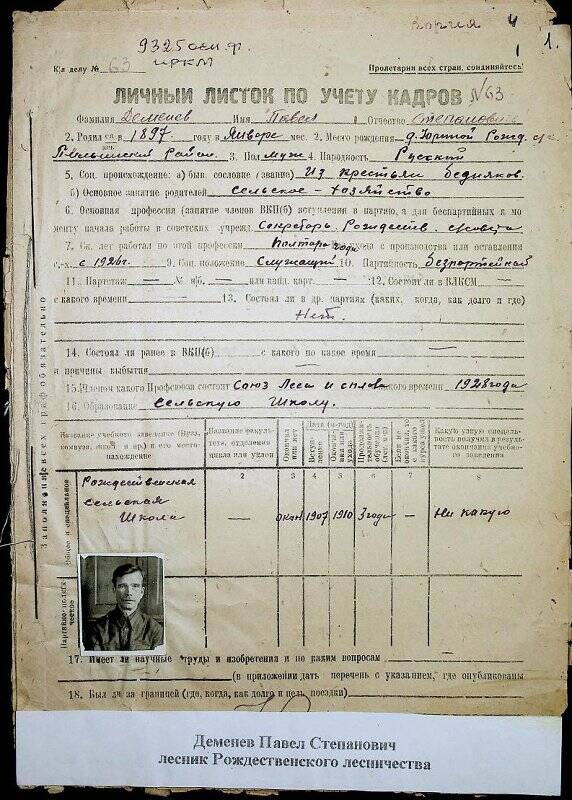 Копия 4
1.
9325 оси.ф.
ЧРКМ
К/л делу № 63
Пролетарии всех стран, соединяйтесь!
ЛИЧНЫЙ ЛИСТОК ПО УЧЕТУ КАДРОВ №63
Фамилия Деменев Имя Павел Отчество Степанович
2. Родился в 1897 году в Январе мес. 2. Место рождения д. Рожд. с/с
район. 3. Пол муж 4. Народность Русский
5. Соц. происхождение: а) быв. сословие (звание) Из крестьян бедняков.
б) Основное занятие родителей сельское-хозяйство
6. Основная профессия (занятие членов ВКП(б) вступлении в партию, а для беспартийных к мо
менту начала работы в советских учрежд Секретарь Рождеств. с/совета
7. Ск. лет работал по этой профессии Полтора года с производства или оставления
с-х. с 1926г. 9. Соц. положение Служащий 10. Партийность безпартейной
11. Партстаж — № п/б — или канд. карт — 12. Состоит ли в ВЛКСМ —
с какого времени — 13. Состоял ли в др. партиях (каких, когда, как долго и где)
Нет.
14. Состоял ли ранее в ВКП(б) с какого по какое время —
и причены выбытия —
15. Членом какого Профсоюза состоит Союз Леса и сплава какого времени 1928 года
16. Образование Сельскую Школу.
Заполнение всех граф обязательно
Название учебного заведение (Вуз, комвуз, школ и пр) и его местонахождение
Название факультета, отделения цикла или уклон
Окончил или нет
Дата (м-год)
Вступление
Окончания или ухода
Продолжительность обучения (лет, м-ц)
Если не окончил, то с какого курса ушел
Какую узкую специальность получил в результате окончания учебного заведения
2 3 4 5 6 7 8
Общее и специальное
Рождественская
сельская
Школа — окон 1907 1910 3 года — Ни какую
Партийно-политическое
17. Имеет ли научные труды и изобретения и по каким вопросам
(в приложении дать перечень с указанием, где опубликованы
18. Был ли за границей (где, когда, как долго и цель поездки)
Деменев Павел Степанович
лесник Рождественского лесничества